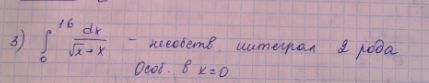 3) ∫₀¹⁶ dx/(√x+x) - несобств интеграл 2 рода
Особ. в x=0